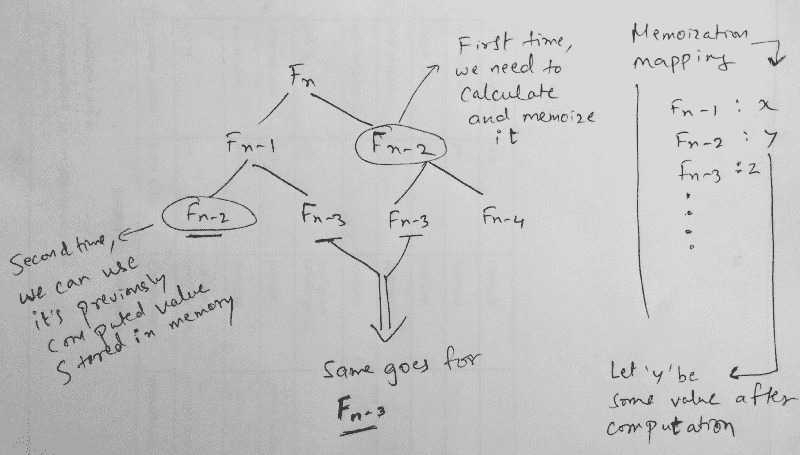 Fn
Fn-1
Fn-2
Fn-2
Fn-3
Fn-3
Fn-4
First time,
we need to
calculate
and memoize
it
Second time,
we can use
it's previously
computed value
stored in memory
Same goes for
Fn-3
Memoization
mapping
Fn-1 : x
Fn-2 : y
Fn-3 : z
Let 'y' be
some value after
computation